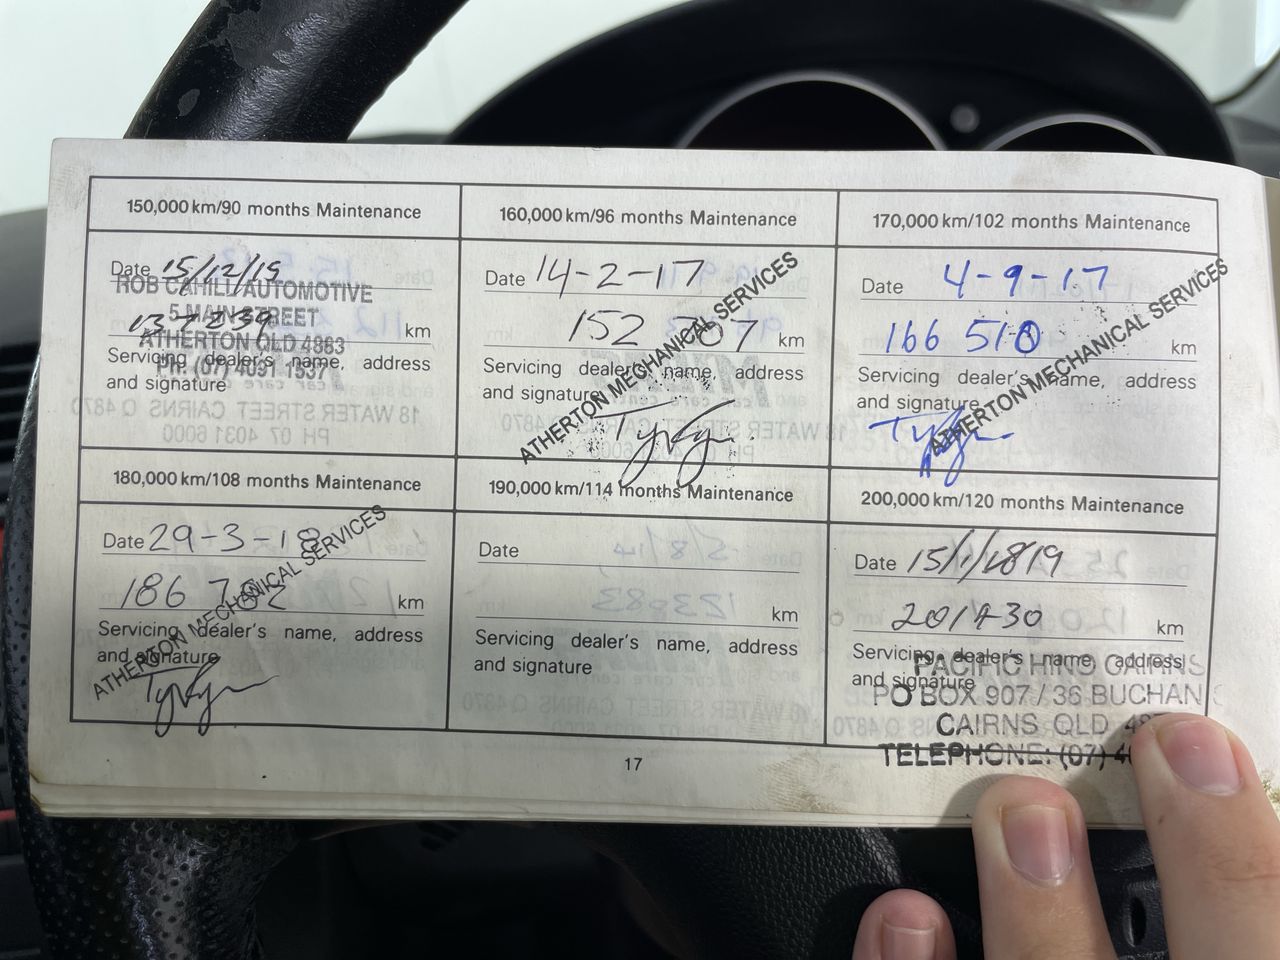 150,000 km/90 months Maintenance
Date 15/12/15
ROB CAHILL AUTOMOTIVE
5 MAIN STREET
137239 km
ATHERTON QLD 4883
Servicing dealer's name, address
Ph: (07) 4091 1337
and signature
160,000 km/96 months Maintenance
Date 14-2-17
152 707 km
Servicing dealer's name, address
and signature
ATHERTON MECHANICAL SERVICES
170,000 km/102 months Maintenance
Date 4-9-17
166 510 km
Servicing dealer's name, address
and signature
ATHERTON MECHANICAL SERVICES
180,000 km/108 months Maintenance
Date 29-3-18
186 782 km
Servicing dealer's name, address
and signature
ATHERTON MECHANICAL SERVICES
190,000 km/114 months Maintenance
Date
km
Servicing dealer's name, address
and signature
200,000 km/120 months Maintenance
Date 15/1/19
km
Servicing dealer's name, address
and signature
PACIFIC HINO CAIRNS
PO BOX 907 / 36 BUCHAN
CAIRNS QLD
TELEPHONE: (07)
17